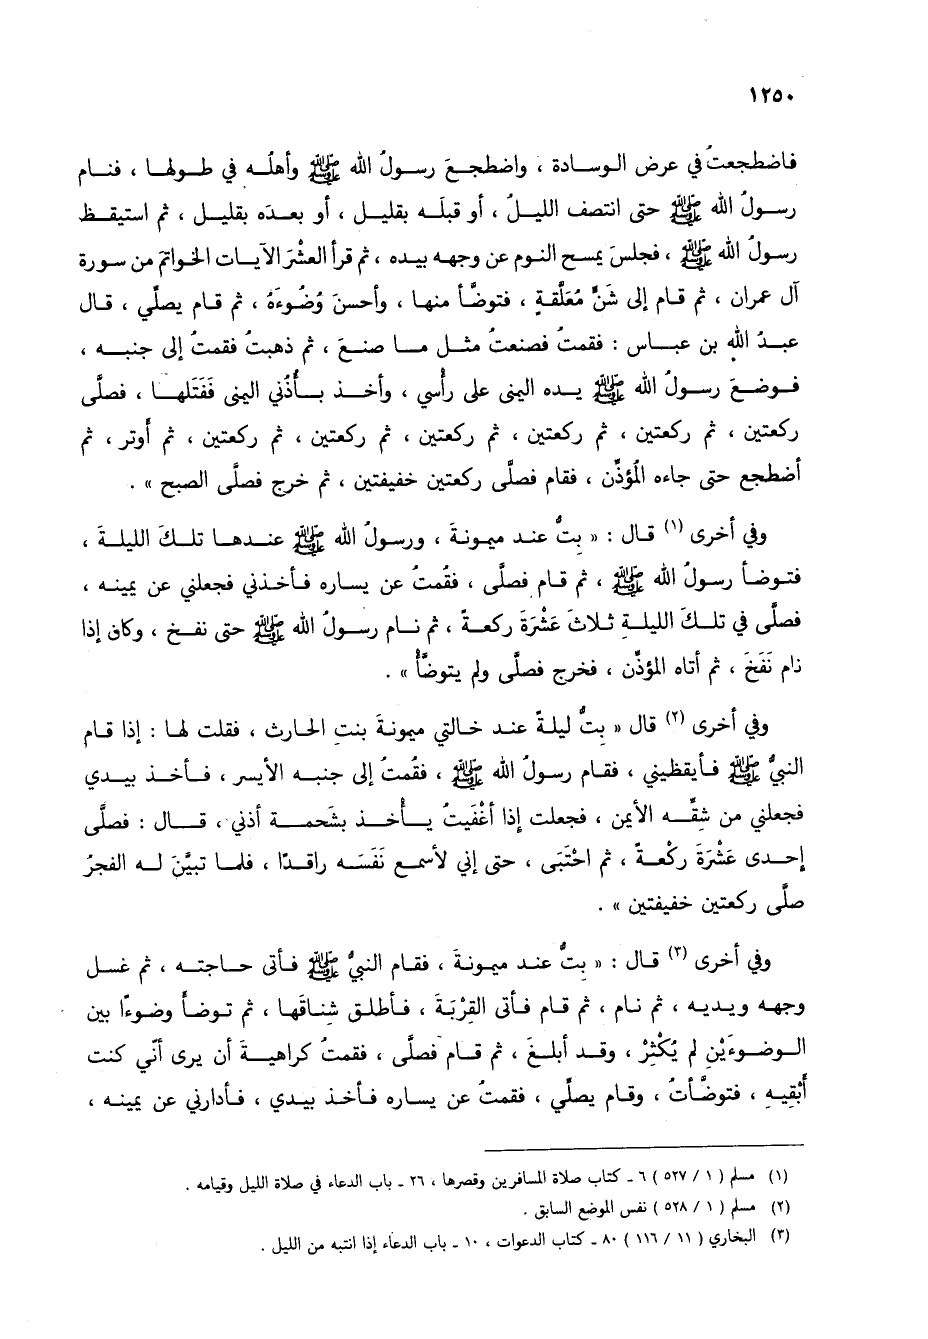 ١٢٥٠
فاضطجعتُ في عرض الوسادة ، واضطجعَ رسولُ الله ﷺ وأهلُه في طولها ، فنام
رسولُ الله ﷺ حتى انتصف الليلُ ، أو قبلَه بقليل ، أو بعدَه بقليل ، ثم استيقظ
رسولُ الله ﷺ ، فجلسَ يمسح النومَ عن وجهه بيده ، ثم قرأ العشْرَ الآيات الخواتمَ من سورة
آل عمران ، ثم قام إلى شَنٍّ مُعَلَّقةٍ ، فتوضَّأ منها ، وأحسنَ وُضُوءَهُ ، ثم قام يصلِّي ، قال
عبدُ الله بن عباس : فقمتُ فصنعتُ مثل ما صنعَ ، ثم ذهبتُ فقمتُ إلى جنبه ،
فوضعَ رسولُ الله ﷺ يده اليمنى على رأْسي ، وأخذ بأُذُني اليمنى فَفَتَلها ، فصلَّى
ركعتين ، ثم ركعتين ، ثم ركعتين ، ثم ركعتين ، ثم ركعتين ، ثم ركعتين ، ثم أوتر ، ثم
أضطجع حتى جاءه المُؤذِّن ، فقام فصلَّى ركعتين خفيفتين ، ثم خرج فصلَّى الصبح » .
وفي أخرى (١) قال : « بِتُّ عند ميمونةَ ، ورسولُ الله ﷺ عندها تلكَ الليلةَ ،
فتوضأ رسولُ الله ﷺ ، ثم قام فصلَّى ، فقُمتُ عن يساره فأخذني فجعلني عن يمينه ،
فصلَّى في تلكَ الليلةِ ثلاثَ عَشْرَةَ ركعةً ، ثم نام رسولُ الله ﷺ حتى نفخ ، وكان إذا
نام نَفَخَ ، ثم أتاه المؤذِّن ، فخرج فصلَّى ولم يتوضَّأْ » .
وفي أخرى (٢) قال « بِتُّ ليلةً عند خالتي ميمونةَ بنتِ الحارث ، فقلت لها : إذا قام
النبيُّ ﷺ فأيقظيني ، فقام رسولُ الله ﷺ ، فقُمتُ إلى جنبه الأيسر ، فأخذ بيدي
فجعلني من شِقِّه الأيمن ، فجعلت إذا أغْفَيتُ يأخذ بشَحمة أذني ، قال : فصلَّى
إحدى عَشْرَةَ ركْعةً ، ثم احْتَبَى ، حتى إني لأسمع نَفَسَه راقدًا ، فلما تبيَّنَ له الفجرُ
صلَّى ركعتين خفيفتين » .
وفي أخرى (٣) قال : « بتُّ عند ميمونةَ ، فقام النبيُّ ﷺ فأتى حاجته ، ثم غسل
وجهه ويديه ، ثم نام ، ثم قام فأتى القِرْبَةَ ، فأطلق شِناقَها ، ثم توضأ وضوءًا بين
الوضوءَيْنِ لم يُكْثِرْ ، وقد أبلغ ، ثم قام فصلَّى ، فقمتُ كراهيةَ أن يرى أنّي كنت
أَبْقِيهِ ، فتوضَّأتُ ، وقام يصلِّي ، فقمتُ عن يساره فأخذ بيدي ، فأدارني عن يمينه ،
(١) مسلم ( ١ / ٥٢٧ ) ٦ ـ كتاب صلاة المسافرين وقصرها ، ٢٦ ـ باب الدعاء في صلاة الليل وقيامه .
(٢) مسلم ( ١ / ٥٢٨ ) نفس الموضع السابق .
(٣) البخاري ( ١١ / ١١٦ ) ٨٠ ـ كتاب الدعوات ، ١٠ ـ باب الدعاء إذا انتبه من الليل .